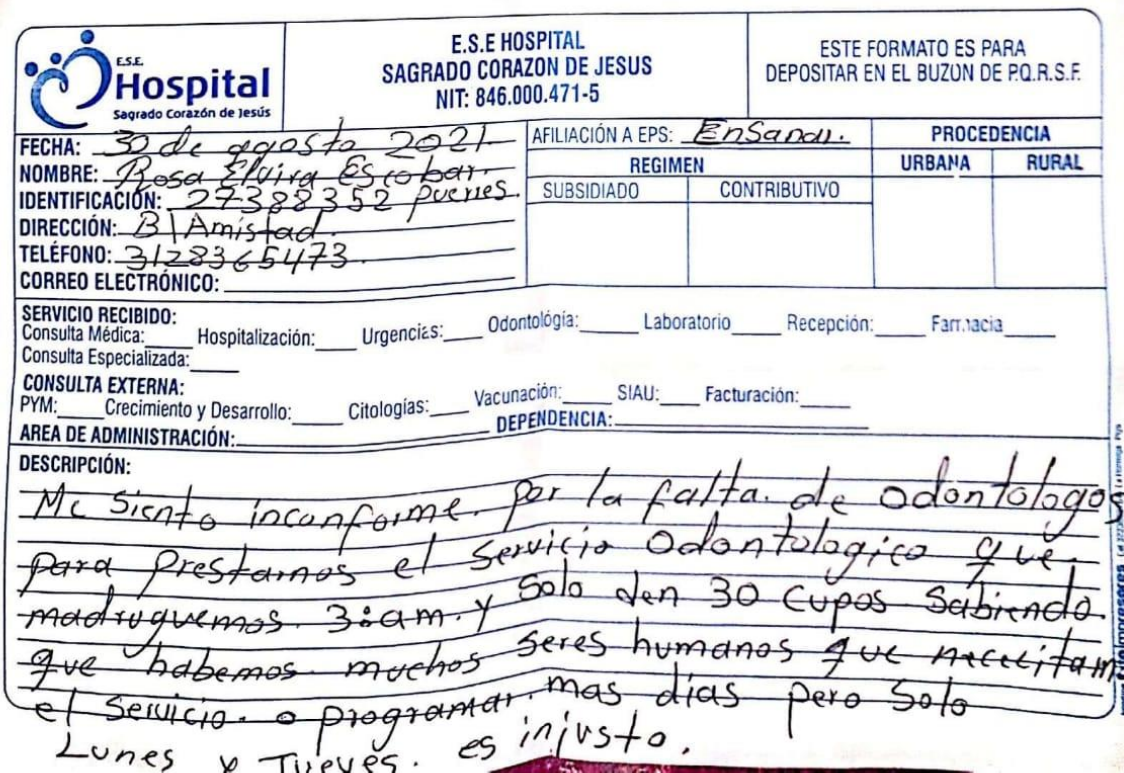 E.S.E.
Hospital
Sagrado Corazón de Jesús
E.S.E HOSPITAL
SAGRADO CORAZON DE JESUS
NIT: 846.000.471-5
ESTE FORMATO ES PARA
DEPOSITAR EN EL BUZON DE P.Q.R.S.F.
FECHA: 30 de agosto 2021
NOMBRE: Rosa Elvira Escobar.
IDENTIFICACIÓN: 27388352 Puerres.
DIRECCIÓN: B/ Amistad.
TELÉFONO: 3128365473.
CORREO ELECTRÓNICO:
AFILIACIÓN A EPS: EnSanar.
REGIMEN
SUBSIDIADO CONTRIBUTIVO
PROCEDENCIA
URBANA RURAL
SERVICIO RECIBIDO:
Consulta Médica: Hospitalización: Urgencias: Odontológia: Laboratorio Recepción: Farmacia
Consulta Especializada:
CONSULTA EXTERNA:
PYM: Crecimiento y Desarrollo: Citologías: Vacunación: SIAU: Facturación:
AREA DE ADMINISTRACIÓN: DEPENDENCIA:
DESCRIPCIÓN:
Me Siento inconforme. por la falta. de Odontologos
para Prestarnos el Servicio Odontologico que
madruguemos. 3:am. y Solo den 30 Cupos Sabiendo.
que habemos muchos seres humanos que necesitam
el Servicio. o programar. mas días pero Solo
Lunes y Jueves. es injusto.